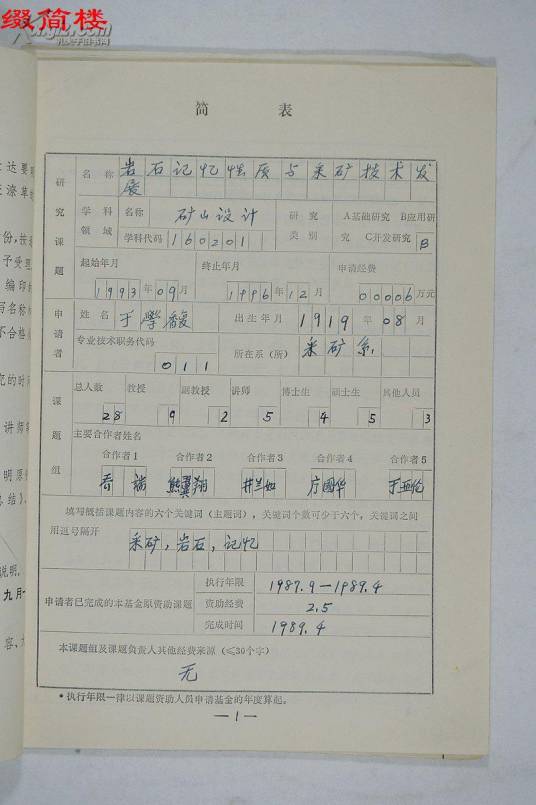 缀简楼
简 表
研究课题
名称 岩石记忆性质与采矿技术发展
学科领域 名称 矿山设计 研究类别 A基础研究 B应用研究 C开发研究 B
学科代码 160201
起始年月 终止年月 申请经费
1993年09月 1996年12月 00006万元
申请者
姓名 于学馥 出生年月 1919年08月
专业技术职务代码 011 所在系(所) 采矿系
课题组
总人数 教授 副教授 讲师 博士生 硕士生 其他人员
28 9 2 5 4 5 3
主要合作者姓名
合作者1 合作者2 合作者3 合作者4 合作者5
乔瑞 熊翼翔 井兰如 方国华 于亚伦
填写概括课题内容的六个关键词(主题词),关键词个数可少于六个,关键词之间
用逗号隔开 采矿,岩石,记忆
申请者已完成的本基金原资助课题
执行年限 1987.9—1989.4
资助经费 2.5
完成时间 1989.4
本课题组及课题负责人其他经费来源(≤30个字)
无
*执行年限一律以课题资助人员申请基金的年度算起。
—1—